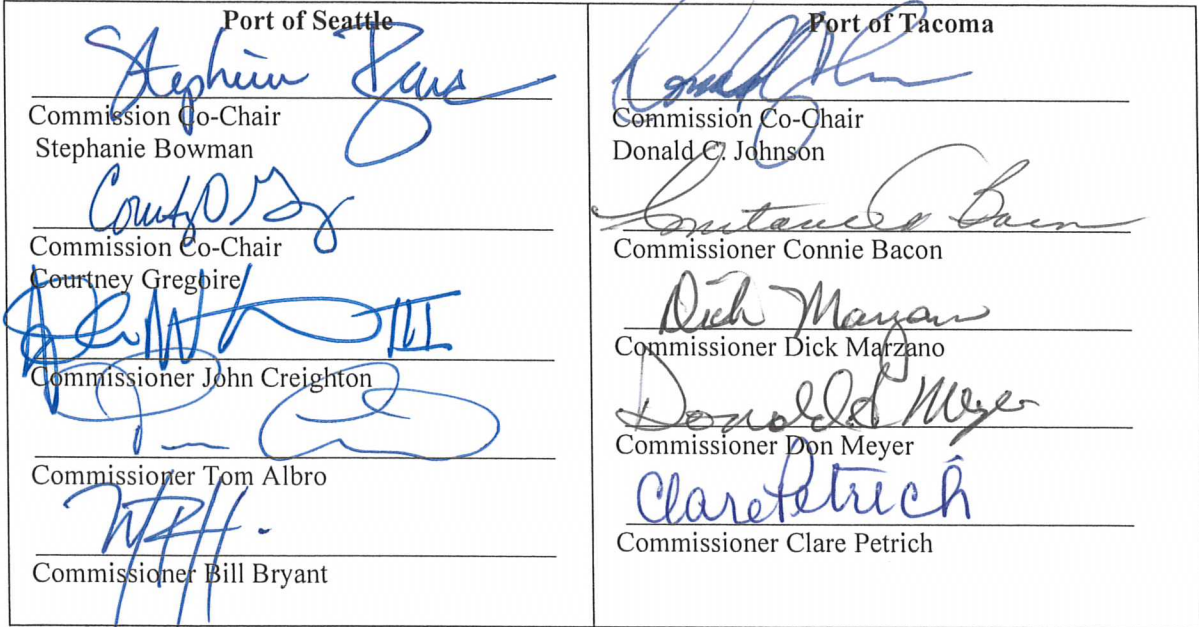 Port of Seattle
Commission Co-Chair
Stephanie Bowman
Commission Co-Chair
Courtney Gregoire
III
Commissioner John Creighton
Commissioner Tom Albro
Commissioner Bill Bryant
Port of Tacoma
Commission Co-Chair
Donald C. Johnson
Commissioner Connie Bacon
Dick Marzano
Commissioner Dick Marzano
Donald Meyer
Commissioner Don Meyer
Clare Petrich
Commissioner Clare Petrich